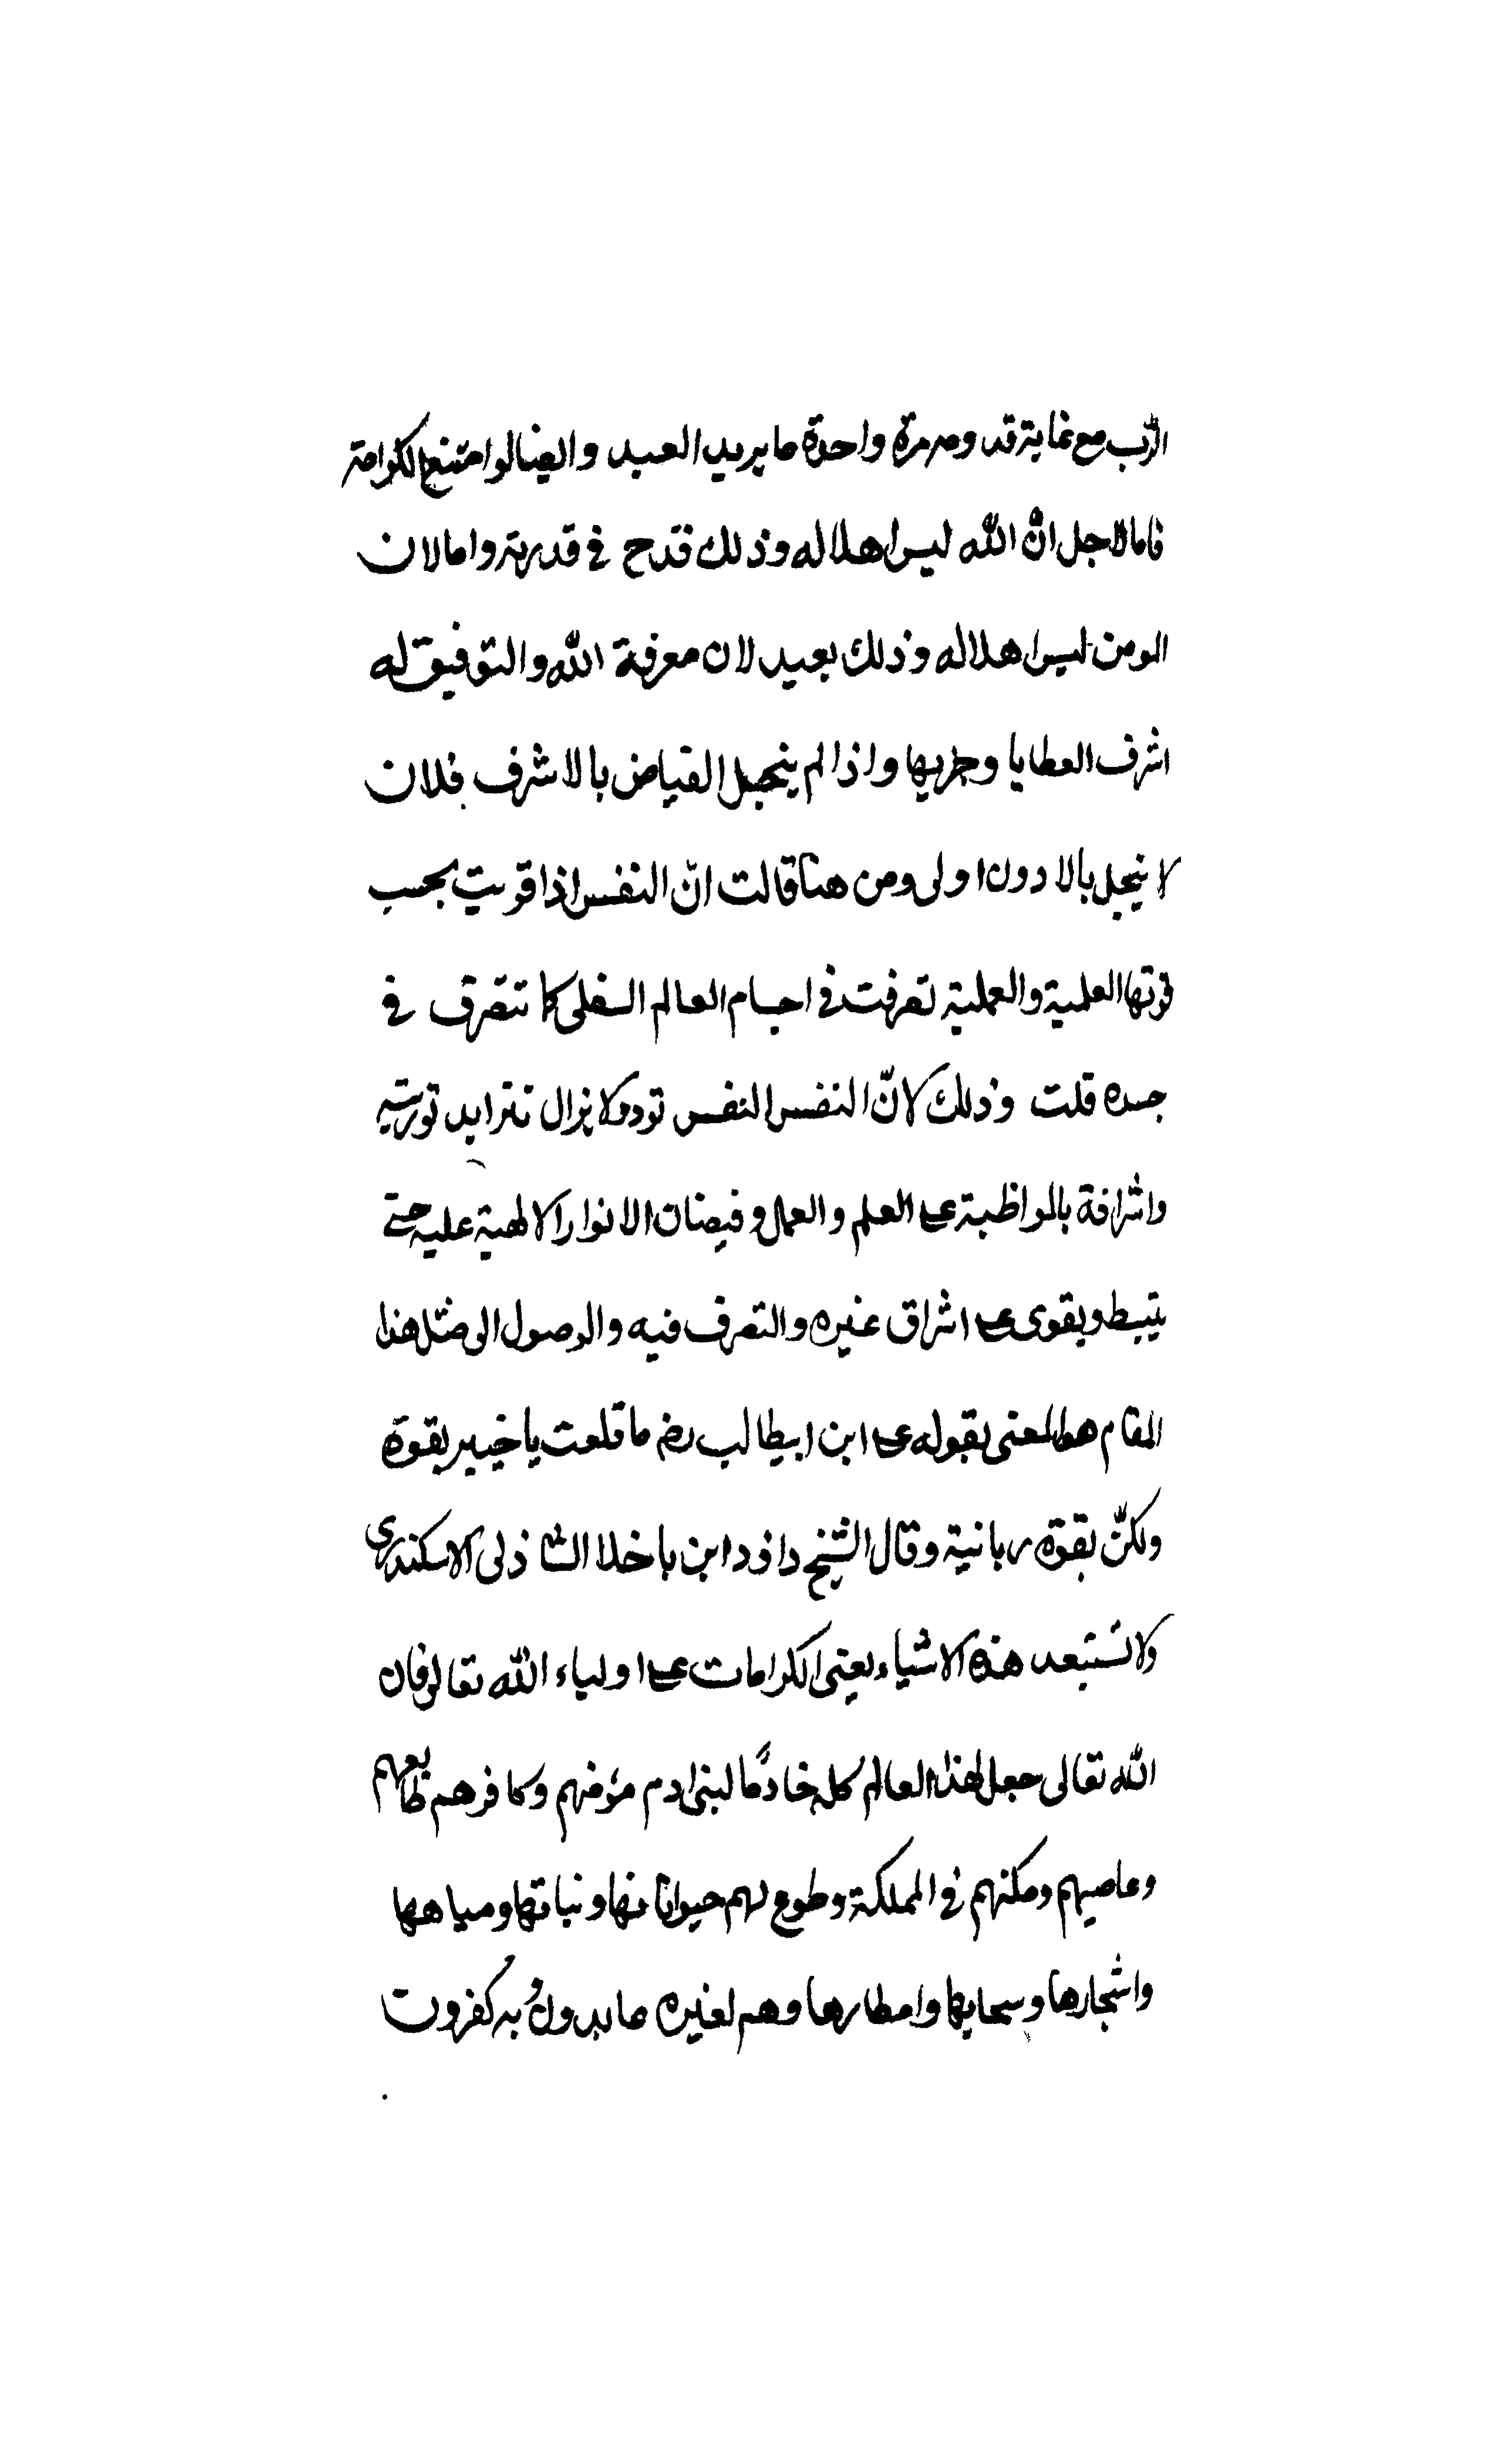 الرّب مع غايته قدرومرة واحدة ما يريد العبد وايضا لوا متنع الكرامة
فاما لاجل انّ الله ليس اهلا له وذلك قدح في قدرته واما لان
المومن ليس اهلا له وذلك بعيد لان معرفة الله والتوفيق له
اشرف العطايا وجزيها واذا لم ينجل الفياض بالاشرف فلان
لا ينجل بالادون اولى ومن هنا قالت انّ النفس اذا قويت بحسب
قوتها العلمية والعملية تصرفت في اجسام العالم السفلى كما تتصرف في
جسده قلت وذلك لانّ النفس النفس تود ولا يزال تتزايد توريته
واشراقة بالمواظبة على العلم والعمل وفيضان الانوار الالهية عليه حتى
يتبسط ويقوى على اشراق غيره والتصرف فيه والوصول الى مثل هذا
المقام هو المعنى بقوله على ابن ابيطالب رضه ما قلعت يا خيبر بقوة
ولكنّ بقوّة ربانية وقال الشيخ داود ابن باخلا الشاذلى الاسكندرى
ولا تستبعد هذه الاشياء يعنى الكرامات على اولياء الله تعالى فان
الله تعالى جعل هذا العالم كله خادمًا لبنى ادم مؤمنهم وكافرهم طايعهم
وعاصيهم ومكنهم في المملكة وطوع لهم حيواناتها ونباتها ومياهها
واشجارها وسحابها وامطارها وهم لغيره عابدون وبه كفرون